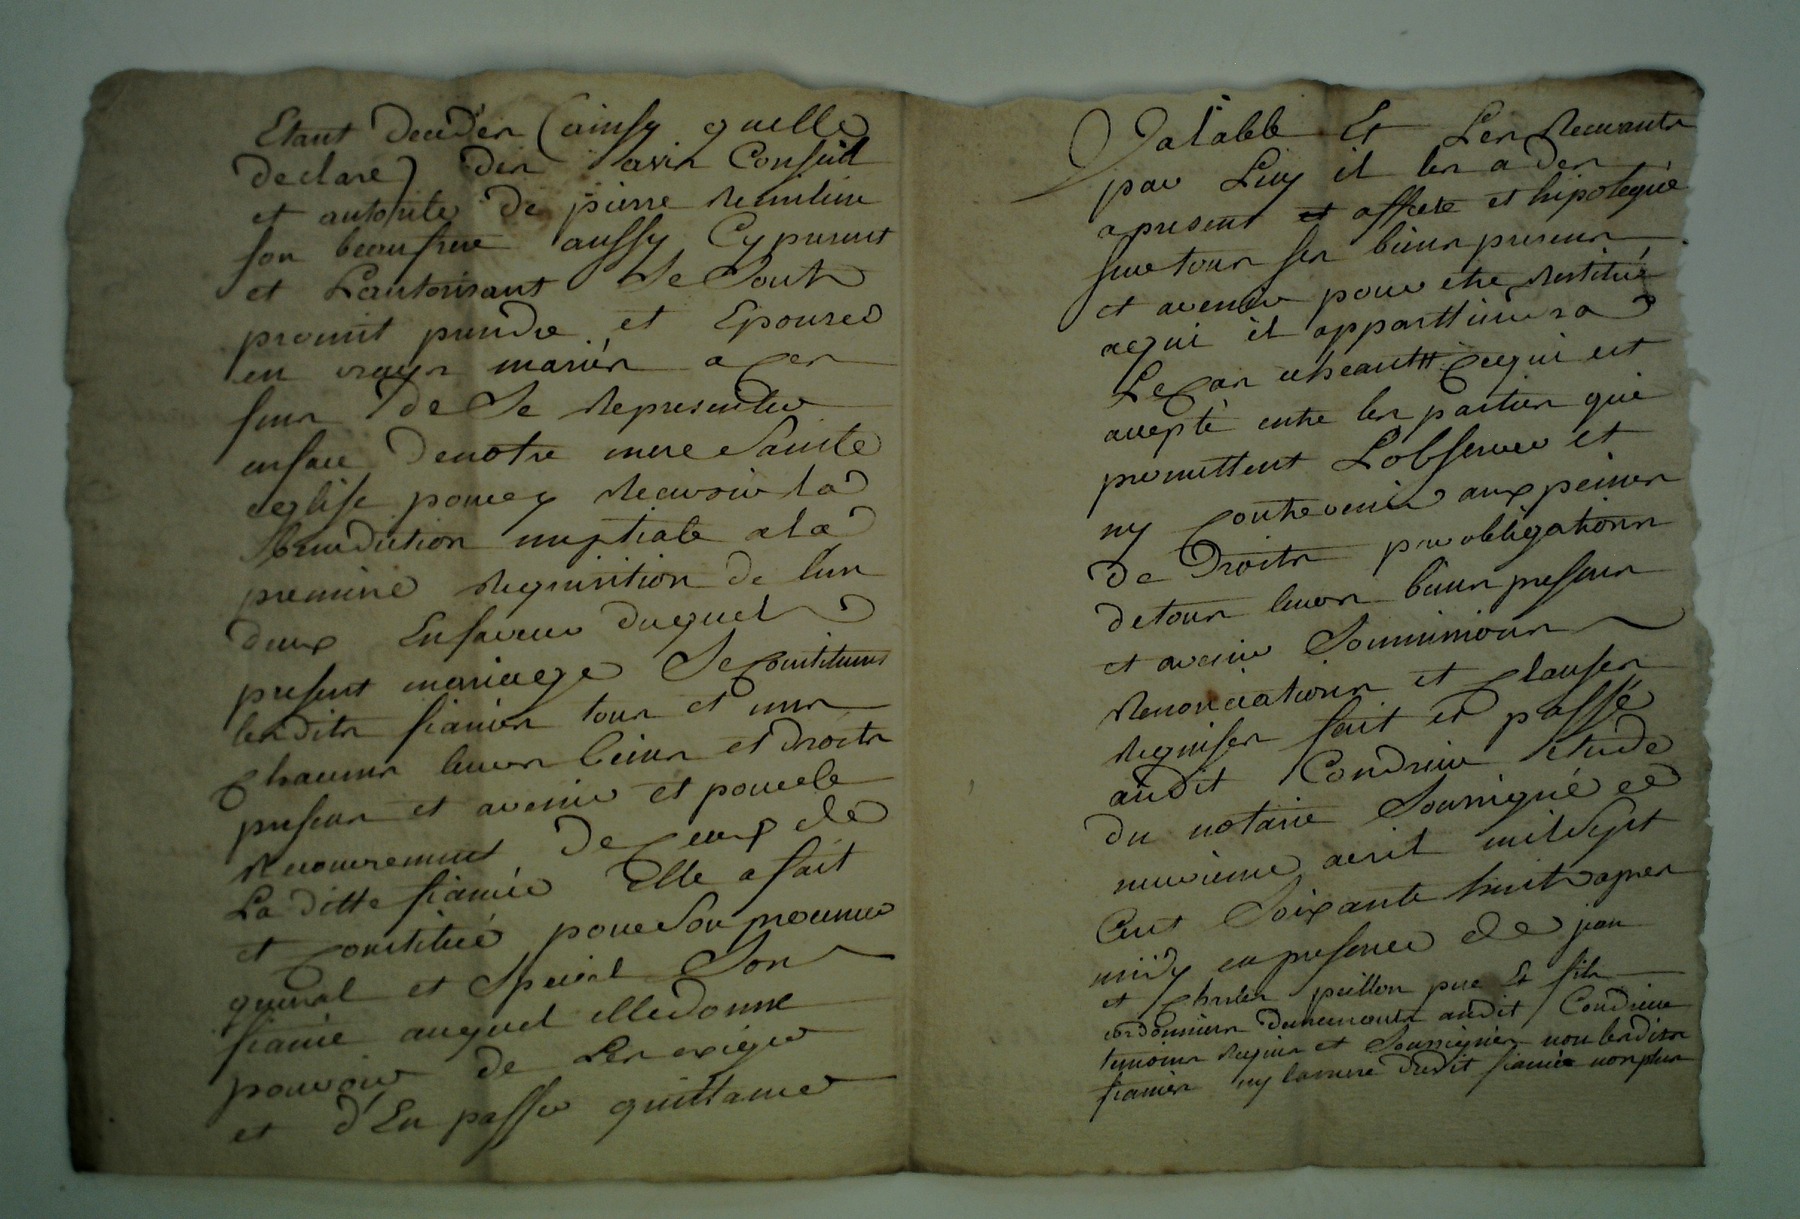 Etant decedés (ainsy quelle
declare) des avis Conseil
et autorité de pierre
son beaufrere aussy Cy present
et L'autorisant Se Sont
promit prendre et Epouser
en vrays mariés a ces
fins de Se Representer
enface denotre mere Sainte
eglise pour y Recevoir la
Benediction nuptiale a la
premiere Requisition de l'un
deux Enfaveur duquel
present mariage Se Constituent
lesdits fiancés tous et uns
Chacuns leurs biens et droits
presens et avenir et pour le
Recouvrement de Ceux de
La ditte fiancée Elle a fait
et Constitué pour Son procureur
general et Special Son
fiancé auquel elle donne
pouvoir de Les exiger
et d'En passer quittance
Valable Et Les Recevants
par Luy il les a des
apresent et affecté et hipotequé
sur tous ses biens presens
et avenir pour etre Restitué
aqui il appartiendra
Le Cas echeant Cequi est
accepté entre les parties qui
promettent L'observer et
ny Contrevenir aux peines
de Droits par obligations
detous leurs biens presens
et avenir Soumissions
Renonciations et Clauses
Requises fait et passé
audit Condrieu Etude
du notaire Soussigné le
neuvieme avril mil Sept
Cent Soixante huit apres
midy en presence de jean
et Charles peillon pere Et fils
cordonniers demeurants audit Condrieu
temoins Requis et Soussignés non lesdits
fiancés ny la mere dudit fiancé non plus